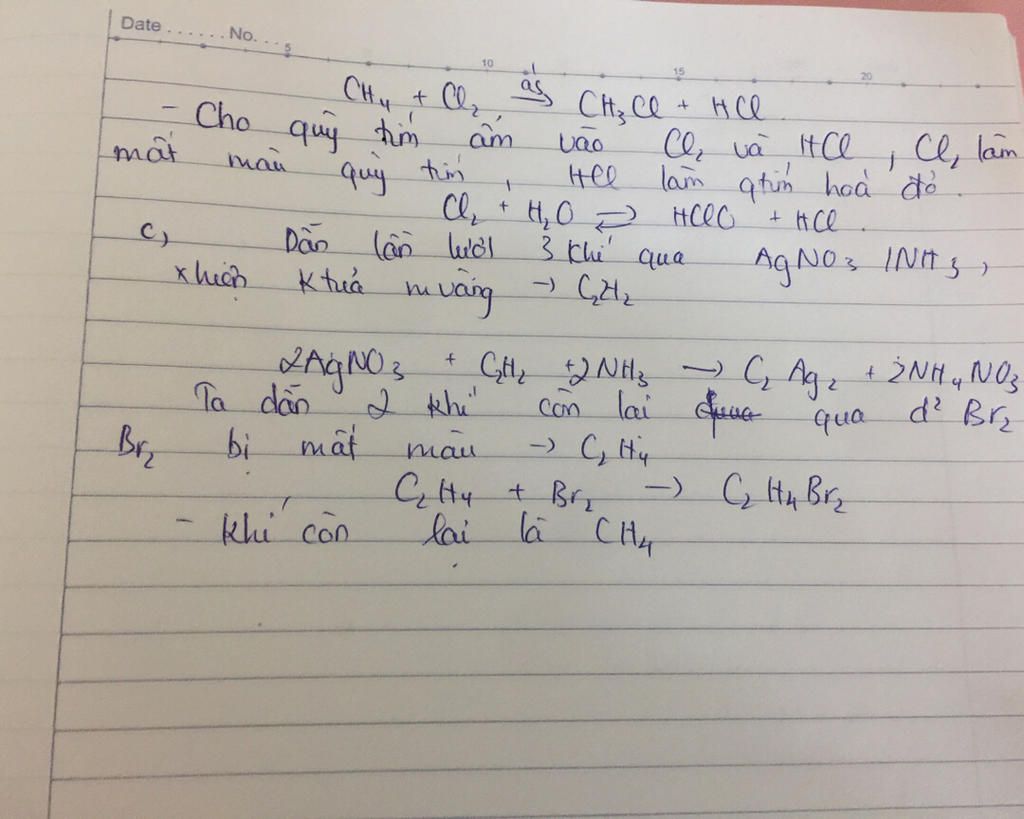 Date ...... No. ...
5 10 15 20
CH₄ + Cl₂ →(ás) CH₃Cl + HCl
- Cho quỳ tím ẩm vào Cl₂ và HCl, Cl₂ làm
mất màu quỳ tím, HCl làm qtím hoá đỏ.
Cl₂ + H₂O ⇌ HClO + HCl.
c, Dẫn lần lượt 3 khí qua AgNO₃/NH₃,
xhiện ktuả mvàng → C₂H₂
2AgNO₃ + C₂H₂ + 2NH₃ → C₂Ag₂ + 2NH₄NO₃
Ta dẫn 2 khí còn lại qua d² Br₂
Br₂ bị mất màu → C₂H₄
C₂H₄ + Br₂ → C₂H₄Br₂
- khí còn lại là CH₄